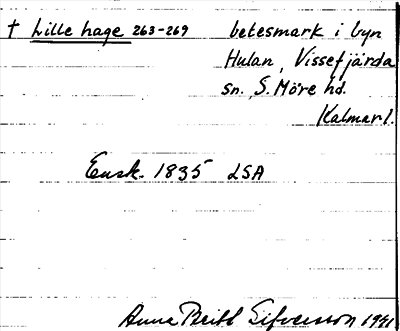 † Lille hage 263-269 betesmark i byn
Hulan, Vissefjärda
sn., S. Möre hd.
Kalmar l.
Ensk. 1835 LSA
Anna Britt Sifversson 1941